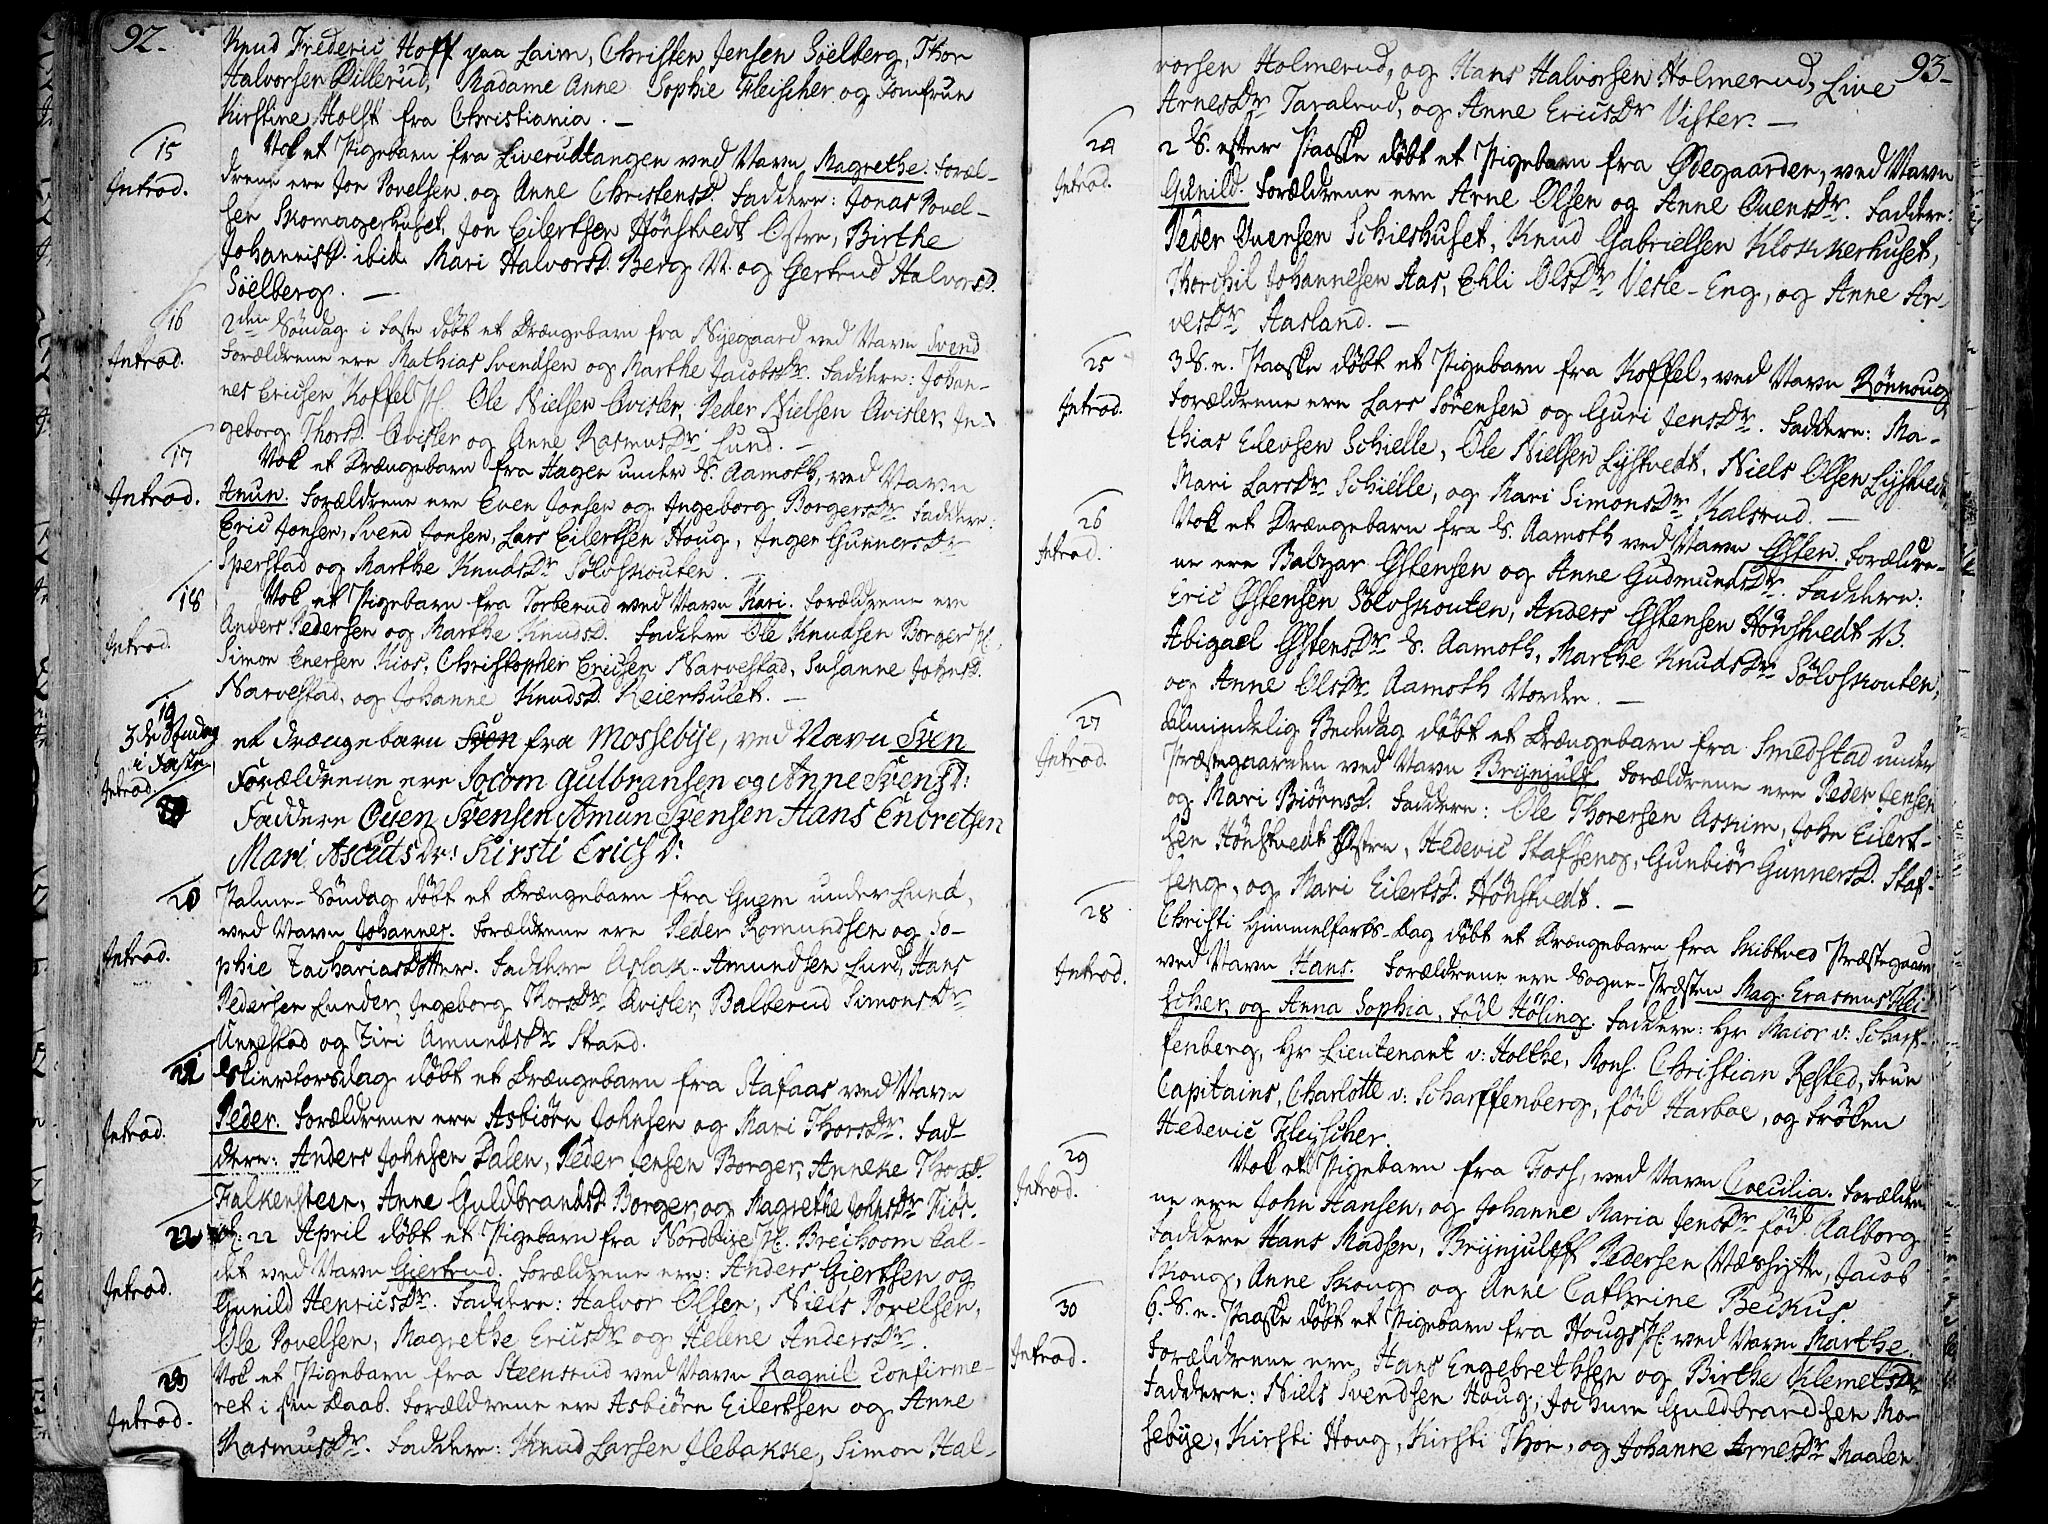 92.
Knud Frederic Hoff paa Laim, Christen Jensen Söelberg, Thor
Halvorsen Dillerud, Madame Anne Sophie Fleischer og Jomfrue
Kirstine Holst fra Christiania. —
15
Nok et Pigebarn fra Liverudtangen ved Navn Magrethe. Foræl-
Introd.
drene ere Jon Povelsen og Anne Christensd. Faddere: Jonas Povel-
sen Skomagerhuset, Jon Eilertsen Hönstvedt Östre, Birthe
Johannisd. ibid. Mari Halvorsd. Berg N. og Gertrud Halvorsd.
Söelberg. —
16
2den Söndag i Faste döbt et Drængebarn fra Nijegaard ved Navn Svend
Introd.
Forældrene ere Mathias Svendsen og Marthe Jacobsdr. Faddere: Johan-
nes Ericsen Koffel Ole Nielsen Qvisler, Peder Nielsen Qvisler, In-
geborg Thorsd. Qvisler og Anne Rasmusdr Lund. —
17
Nok et Drængebarn fra Hagen under S. Aamoth, ved Navn
Introd.
Anun. Forældrene ere Even Jonsen og Ingeborg Borgersdr Faddere:
Eric Jonsen, Svend Jonsen, Lars Eilertsen Houg, Inger Gunnersdr
Sperstad og Marthe Knudsdr Sölvskouten.
18
Nok et Pigebarn fra Torberud ved Navn Kari. Forældrene ere
Introd.
Anders Pedersen og Marthe Knudsd. Faddere Ole Knudsen Borger
Simon Enersen Kios, Christopher Ericsen Narvestad, Susanne Johnsd.
Narvestad, og Johanne Knudsd. Reierhuset. —
19
3de Söndag
i Faste
et Drængebarn Sven fra Mossebije, ved Navn Sven
Introd.
Forældrene ere Jocom Gulbransen og Anne Svensd:
Faddere Ouen Svensen Amun Svensen Hans Endretsen
Mari Ascutsdr: Kirsti Ericsd:
20
Palme-Söndag döbt et Drængebarn fra Guem under Lund,
ved Navn Johannes. Forældrene ere Peder Romundsen og So-
Introd.
phie Zachariasdötter. Faddere Aslak Amundsen Lund, Hans
Pedersen Lunder, Ingeborg Thorsdr Qvisler, Balberud Simonsdr
Unnestad og Ziri Amundsdr Strand.
21
Skiertorsdag döbt et Drængebarn fra Stafaas ved Navn
Introd.
Peder. Forældrene ere Asbiörn Johnsen og Mari Thorsdr. Fad-
dere: Anders Johnsen Dalen, Peder Jensen Borger, Anneke Thorsd.
Falkensteen, Anne Guldbrandsd. Borger, og Magrethe Johnsdr Kiös.
22
d: 22 April döbt et Pigebarn fra Nordbije Breikoom kal-
Introd.
det ved Navn Giertrud. Forældrene ere: Anders Giertsen og
Gunild Henricsdr. Faddere: Halvor Olsen, Niels Povelsen,
Ole Povelsen, Magrethe Ericsdr og Helene Andersdr.
23
Nok et Pigebarn fra Steensrud ved Navn Ragnil Confirme-
Introd.
ret i sin Daab. Forældrene ere Asbiörn Eilertsen og Anne
Rasmusdr. Faddere: Knud Larsen Ilebakke, Simon Hal-
93.
vorsen Holmerud, og Hans Halvorsen Holmerud, Live
Arnesdr Taralrud, og Anne Ericsdr Vister. —
24
2 S. efter Paaske döbt et Pigebarn fra Ödegaarden, ved Navn
Introd.
Gunild. Forældrene ere Arne Olsen og Anne Ouensdr. Faddere:
Peder Ouensen Schieshuset, Knud Gabrielsen Klokkerhuset,
Thorchil Johannesen Aas, Ehli Olsdr Vesle-Eng, og Anne Ar-
vesdr Aasland. —
25
3 S. e. Paaske döbt et Pigebarn fra Koffel, ved Navn Rönnoug
Introd.
Forældrene ere Lars Sörensen og Guri Jensdr. Faddere: Ma-
thias Elevsen Schielle, Ole Nielsen Lystvedt, Niels Olsen Lystvedt,
Mari Larsdr Schielle, og Mari Simonsdr Kalsrud. —
26
Nok et Drængebarn fra S. Aamoth ved Navn Östen. Forældre-
Introd.
ne ere Balzar Östensen og Anne Gudmundsdr. Faddere:
Eric Östensen Sölvskouten, Anders Östensen Hönstvedt V.
Abigael Östensdr S. Aamoth, Marthe Knudsdr Sölvskouten,
og Anne Olsdr Aamoth Nordre. —
27
Almindelig Bededag döbt et Drængebarn fra Smedstad under
Introd.
Præstegaarden ved Navn Brijnjulf. Forældrene ere Peder Jensen
og Mari Biörnsd. Faddere: Ole Thoresen Askim, John Eilert-
sen Hönstvedt Östre, Hedevic Stafseng, Gunbiör Gunnersd. Staf-
seng, og Mari Eilertsd. Hönstvedt. —
28
Christi Himmelfarts-Dag döbt et Drængebarn fra Skibtved Præstegaard
Introd.
ved Navn Hans. Forældrene ere Sogne-Præsten Mag. Erasmus Flei-
scher, og Anna Sophia, föd Höling. Faddere: Hr Maior v: Scharf-
fenberg, Hr Lieutenant v: Holthe, Mons. Christian Rested, Frue
Capitains, Charlotte v: Scharffenberg, föd Harboe, og Fröken
Hedevic Fleischer.
29
Nok et Pigebarn fra Foss, ved Navn Coecilia. Forældre-
Introd.
ne ere John Hansen, og Johanne Maria Jensdr föd Aalborg
Faddere Hans Madsen, Brijnjulff Pedersen Næshytte, Jacob
Skoug, Anne Skoug og Anne Cathrine Beckus
30
6. S. e. Paaske döbt et Pigebarn fra Hougs ved Navn Marthe
Introd.
Forældrene ere Hans Engebrethsen og Birthe Klemetsdr
Faddere: Niels Svendsen Houg, Jochum Guldbrandsen Mo-
sebije, Kirsti Houg, Kirsti Thon, og Johanne Arnesdr Maalen.